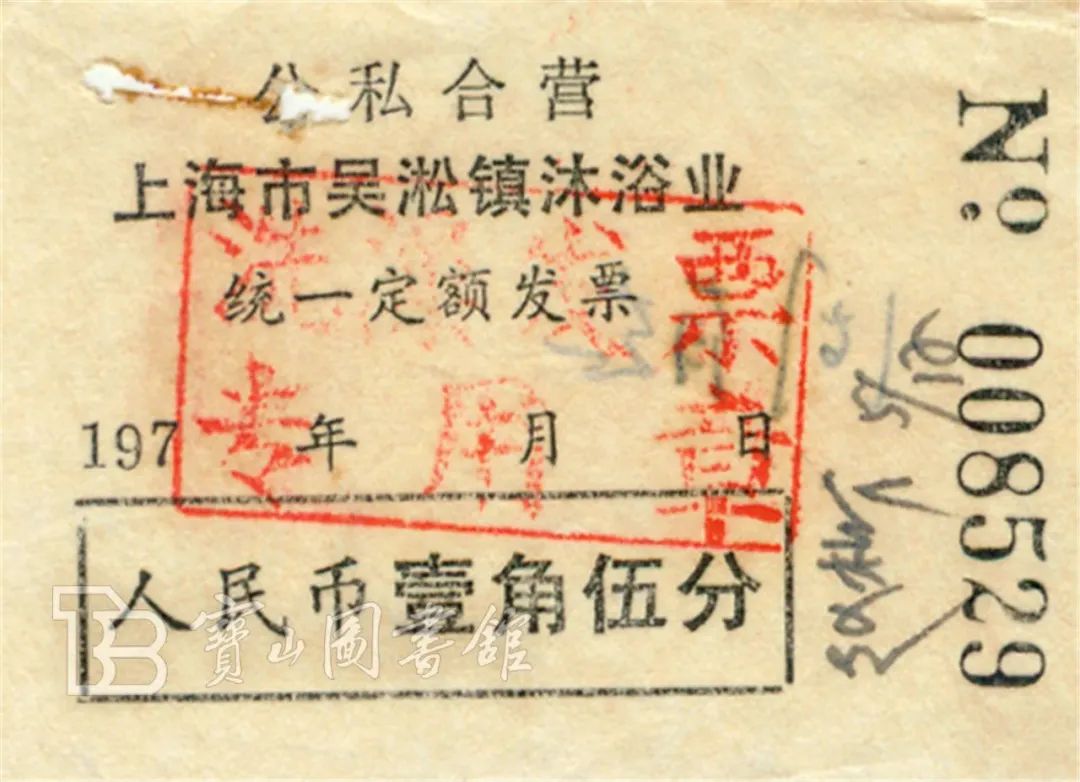 公私合营
上海市吴淞镇沐浴业
统一定额发票
197 年 月 日
人民币壹角伍分
票
专用章
No. 008529
5/18
TB 寶山圖書館